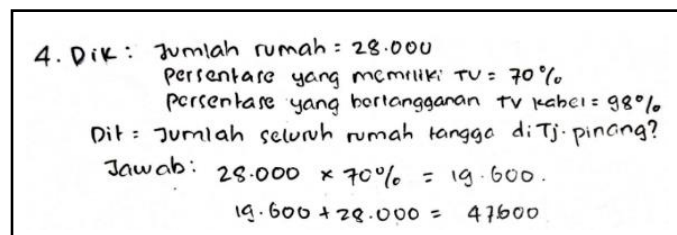 4. Dik : Jumlah rumah = 28.000
Persentase yang memiliki TV = 70%
Persentase yang berlangganan tv kabel = 98%
Dit = Jumlah seluruh rumah tangga di Tj. pinang?
Jawab : 28.000 × 70% = 19.600.
19.600 + 28.000 = 47600